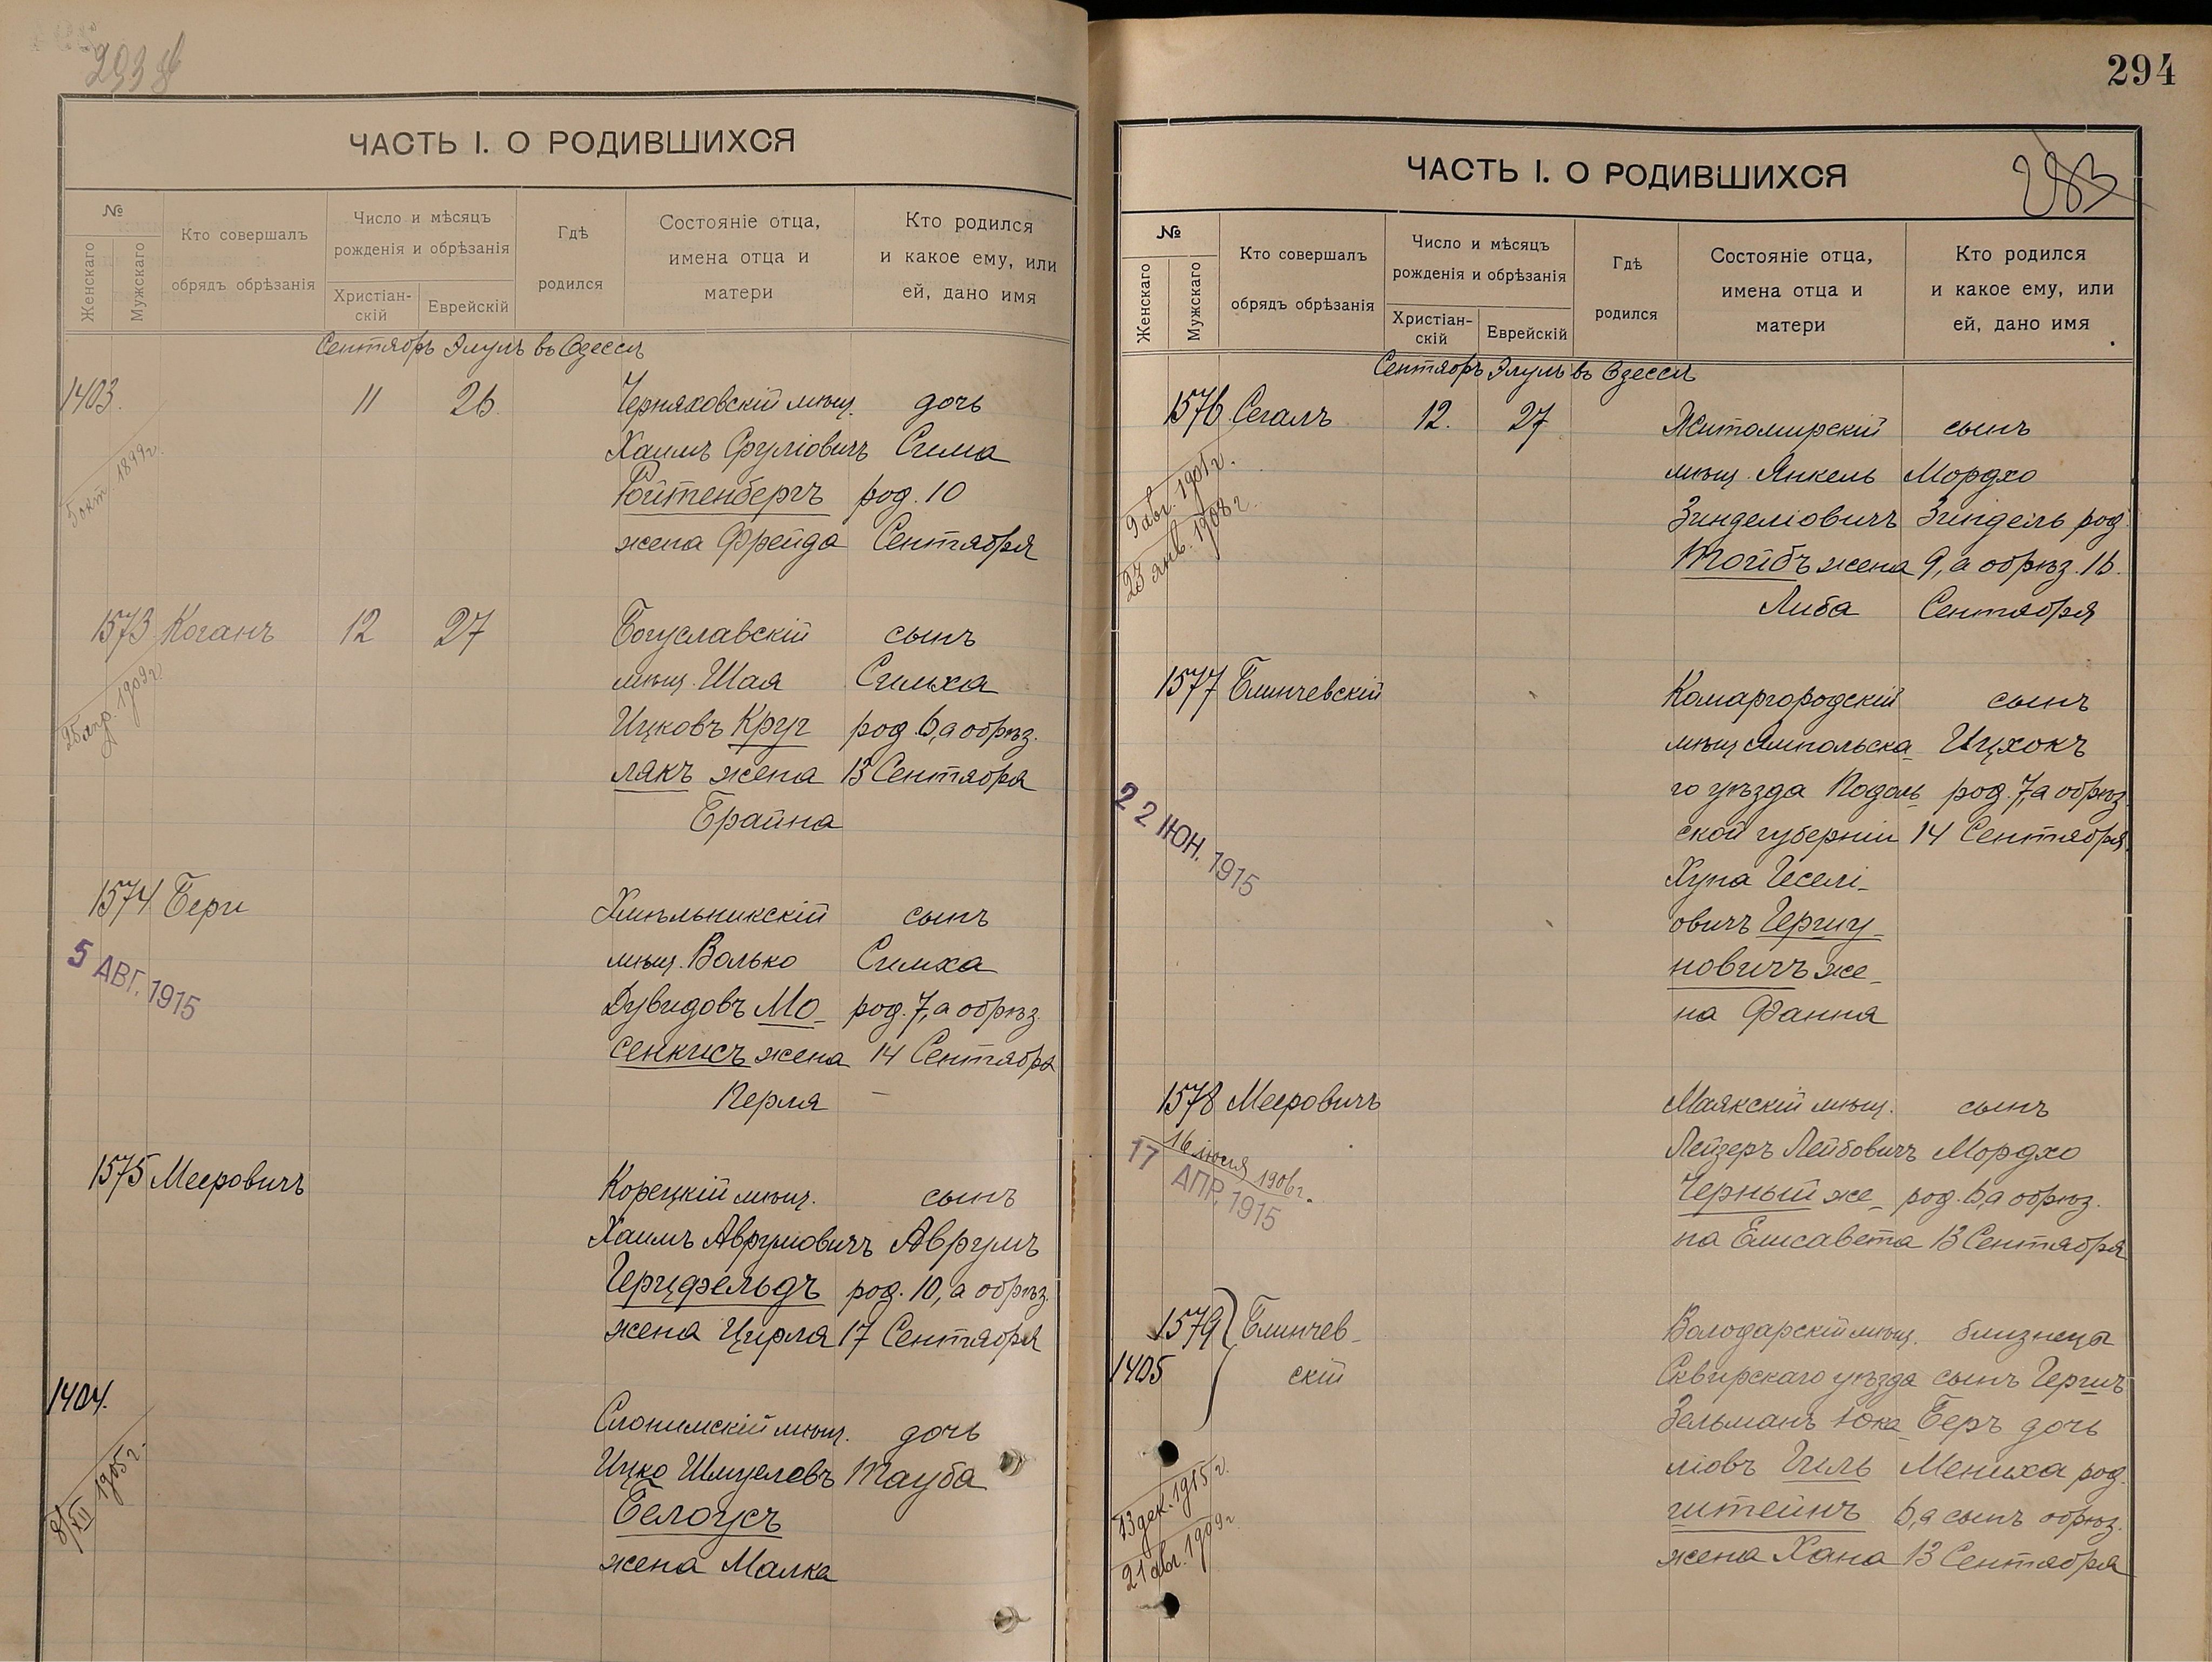 293 об
ЧАСТЬ I. О РОДИВШИХСЯ
№
Женскаго
Мужскаго
Кто совершалъ
обрядъ обрѣзанія
Число и мѣсяцъ
рожденія и обрѣзанія
Христіан-
скій
Еврейскій
Гдѣ
родился
Состояніе отца,
имена отца и
матери
Кто родился
и какое ему, или
ей, дано имя
Сентябрь Элулъ въ Одессѣ
1403. 11 26. Черняховскій мѣщ. дочь
Хаимъ Сруліовичъ Сима
Ройтенбергъ род. 10
жена Фрейда Сентября
5 окт. 1899 г.
1573 Коганъ 12 27 Богуславскій сынъ
мѣщ. Шая Симха
Ицковъ Круг род. 6, а обрѣз.
лякъ жена 13 Сентября
Брайна
25 апр. 1909 г.
1574 Берг Хмѣльникскій сынъ
мѣщ. Волько Симха
Дувидовъ Мо- род. 7, а обрѣз.
сенкисъ жена 14 Сентября
Перля
5 АВГ. 1915
1575 Мееровичъ Корецкій мѣщ. сынъ
Хаимъ Аврумовичъ Аврумъ
Герцфельдъ род. 10, а обрѣз.
жена Цирля 17 Сентября
1404. Слонимскій мѣщ. дочь
Ицко Шмулевъ Тауба
Белоусъ
жена Малка
8/XII 1905 г.
294
283
ЧАСТЬ I. О РОДИВШИХСЯ
№
Женскаго
Мужскаго
Кто совершалъ
обрядъ обрѣзанія
Число и мѣсяцъ
рожденія и обрѣзанія
Христіан-
скій
Еврейскій
Гдѣ
родился
Состояніе отца,
имена отца и
матери
Кто родился
и какое ему, или
ей, дано имя
Сентябрь Элулъ въ Одессѣ
1576 Сегалъ 12. 27 Житомирскій сынъ
мѣщ. Янкель Мордхо
Зинделіовичъ Зиндель род.
Тойбъ жена 9, а обрѣз. 16.
Либа Сентября
9 авг. 1901 г.
23 янв. 1908 г.
1577 Блинчевскій Комаргородскій сынъ
мѣщ. Ямпольска- Ицхокъ
го уѣзда Подоль- род. 7, а обрѣз.
ской губерніи 14 Сентября
Хуна Іеселі-
овичъ Гершу-
новичъ же-
на Фання
22 ІЮН. 1915
1578 Мееровичъ Маякскій мѣщ. сынъ
Лейзеръ Лейбовичъ Мордхо
Черный же- род. 6, а обрѣз.
на Елисавета 13 Сентября
16 іюля 1906 г.
17 АПР. 1915
1579 Блинчев- Володарскій мѣщ. близнеца
1405 скій Сквирскаго уѣзда сынъ Гершъ
Зельманъ Юка Беръ дочь
ліовъ Гиль Мениха род.
штейнъ 6, а сынъ обрѣз.
жена Хана 13 Сентября
13 дек. 1915 г.
21 авг. 1909 г.